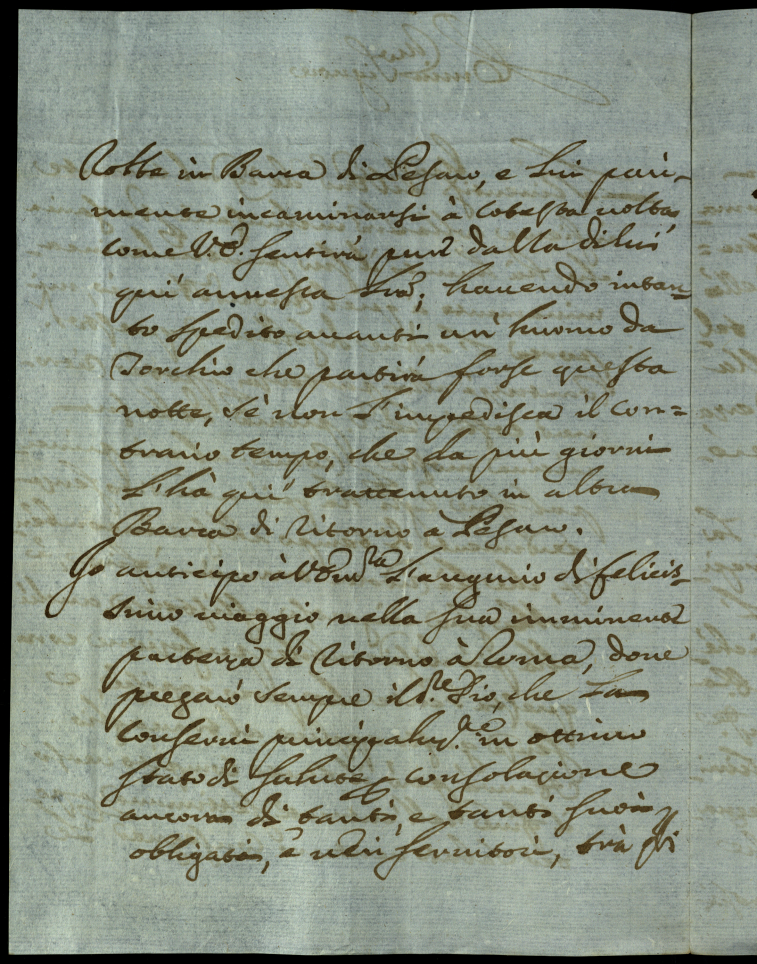 Notte in Barca di Pesaro, e Lui pari-
mente incaminarsi à cotesta uolta,
come V.E. sentirà pur dalla di lui
quì annessa Lrã; hauendo intan=
to spedito auanti un' huomo da
Torchio che partirà forse questa
notte, sè non L'impedisca il con=
trario tempo, che da più giorni
L'hà quì trattenuto in altra
Barca di ritorno à Pesaro.
Io anticipo à V. Em.za L'augurio di felicis=
simo uiaggio nella sua imminente
partenza di ritorno à Roma, doue
pregarò sempre il S.re Dio, che La
conserui principalm.te in ottimo
stato di salute, e consolazione
ancora di tanti, e tanti suoi
obligati, e ueri seruitori, trà q.li